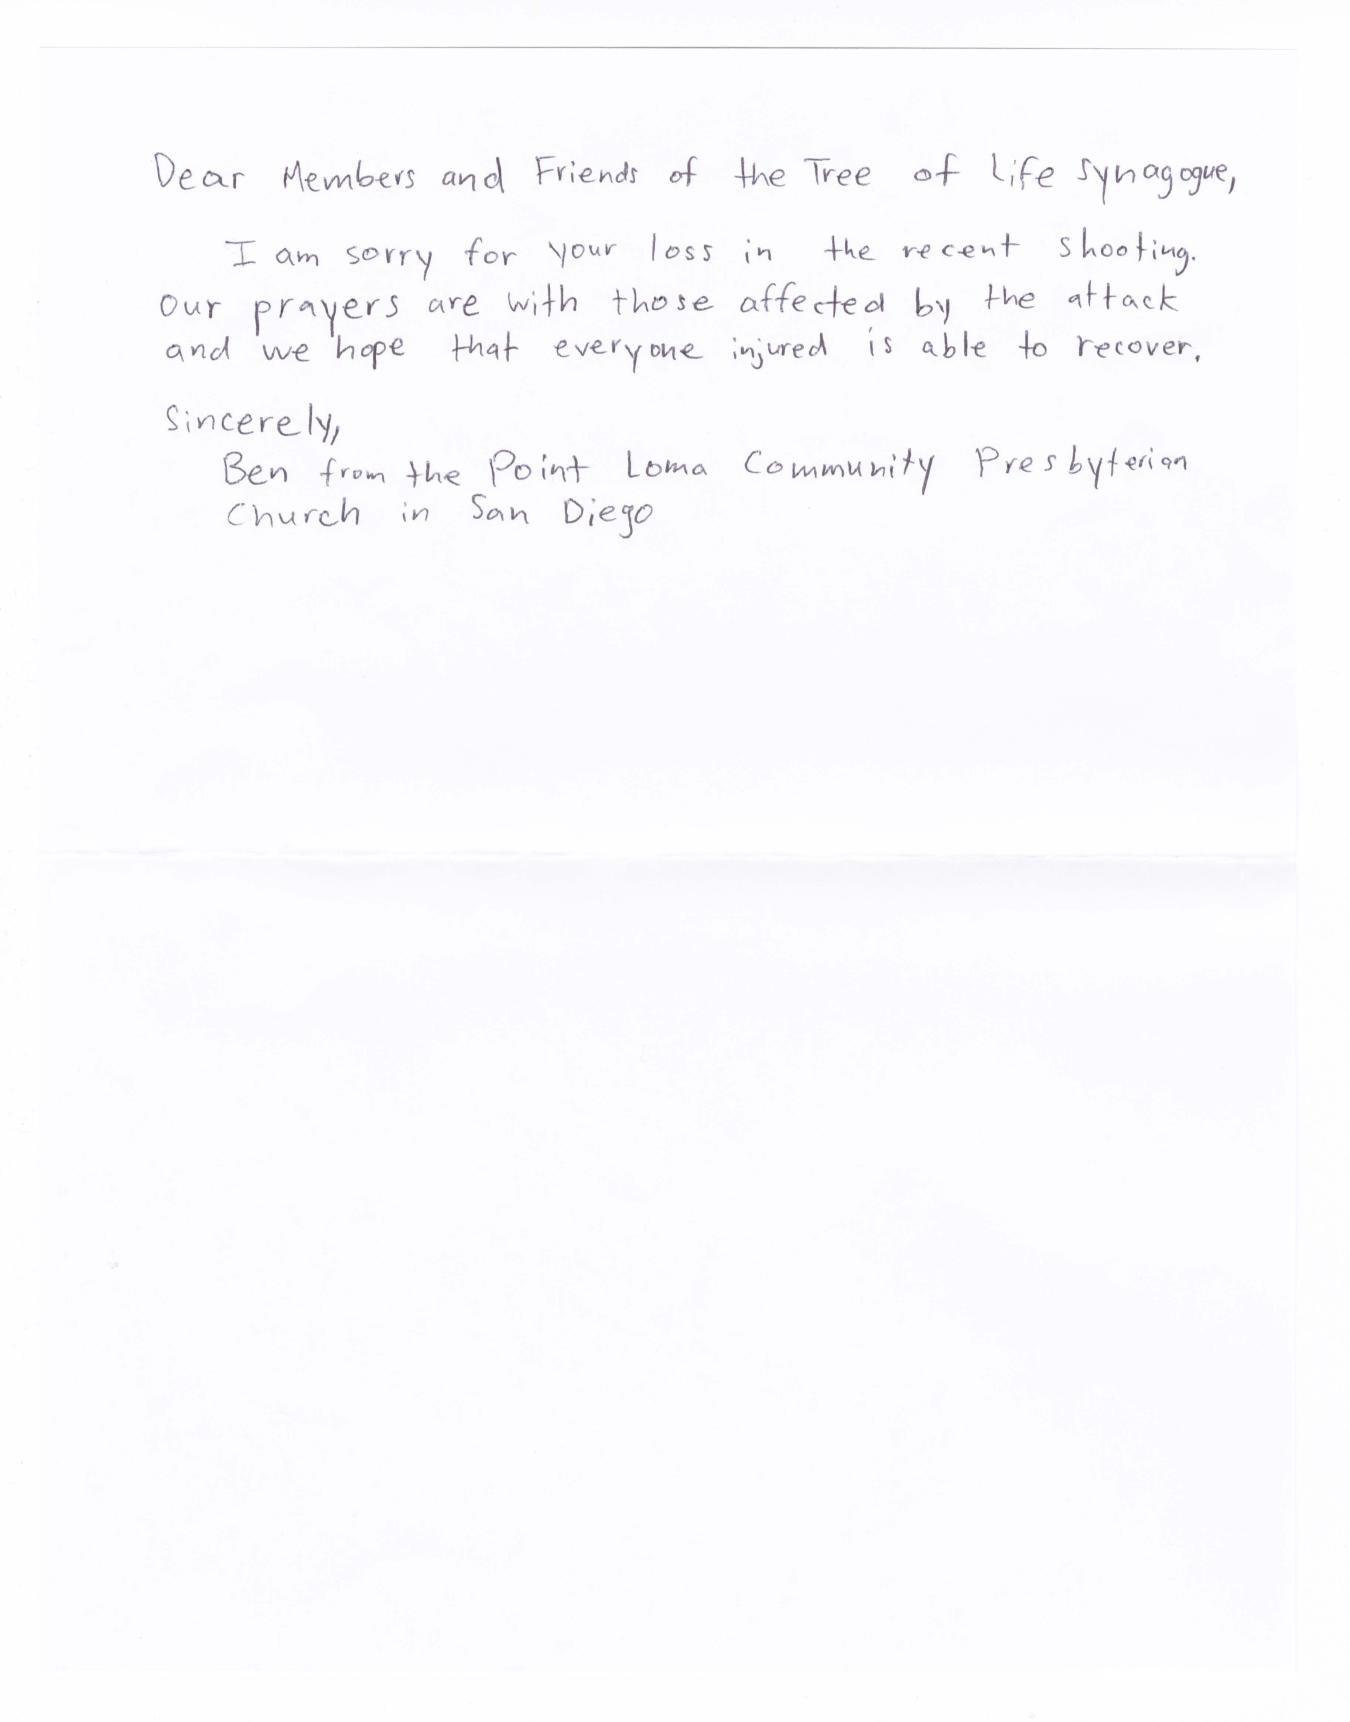 Dear Members and Friends of the Tree of Life Synagogue,
I am sorry for your loss in the recent shooting.
Our prayers are with those affected by the attack
and we hope that everyone injured is able to recover.
Sincerely,
Ben from the Point Loma Community Presbyterian
Church in San Diego